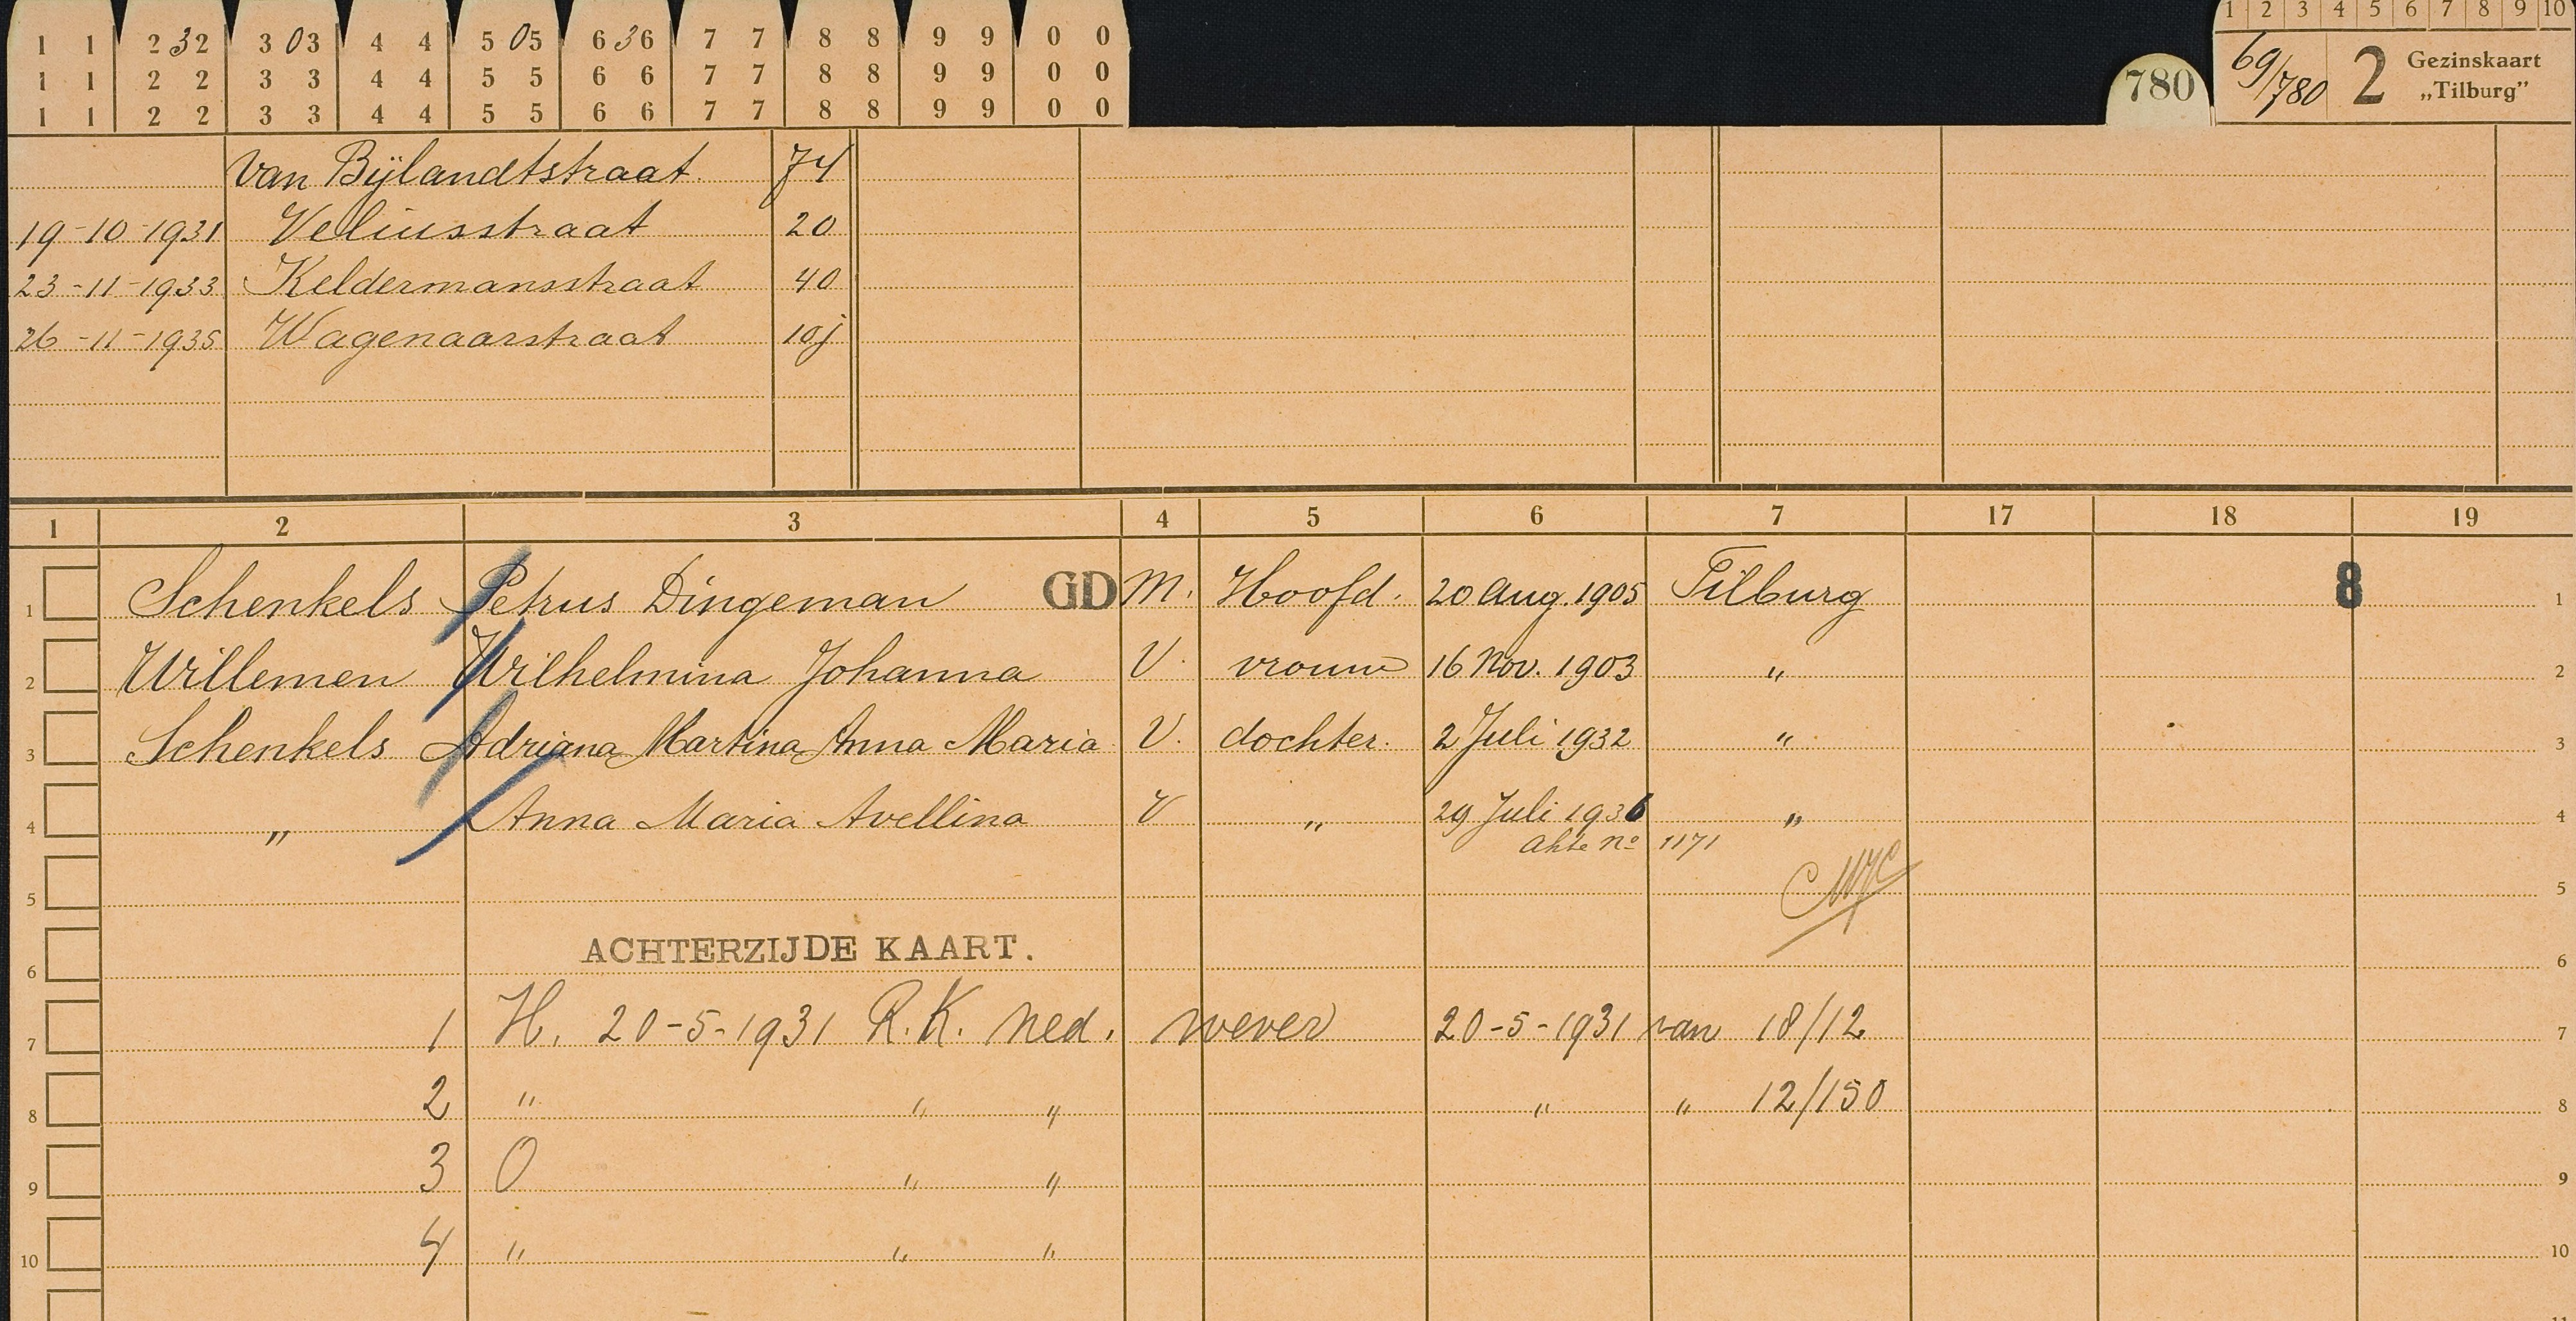 1 2 3 4 5 6 7 8 9 10
1 1 2 3 2 3 0 3 4 4 5 0 5 6 3 6 7 7 8 8 9 9 0 0
1 1 2 2 3 3 4 4 5 5 6 6 7 7 8 8 9 9 0 0
1 1 2 2 3 3 4 4 5 5 6 6 7 7 8 8 9 9 0 0
780 69/780 2 Gezinskaart
„Tilburg”
van Bijlandtstraat 74
19-10-1931 Veliusstraat 20
23-11-1933 Keldermansstraat 40
26-11-1935 Wagenaarstraat 10j
1 2 3 4 5 6 7 17 18 19
1 Schenkels Petrus Dingeman GD M. Hoofd. 20 Aug. 1905 Tilburg 8 1
2 Willemen Wilhelmina Johanna V. vrouw 16 Nov. 1903 " 2
3 Schenkels Adriana Martina Anna Maria V. dochter. 2 Juli 1932 " 3
4 " Anna Maria Avellina V " 29 Juli 1936 " 4
Akte No 1171
5 5
ACHTERZIJDE KAART.
6 6
7 1 H. 20-5-1931 R.K. ned. wever 20-5-1931 van 18/12 7
8 2 " " " " " 12/150 8
9 3 O " " 9
10 4 " " " 10